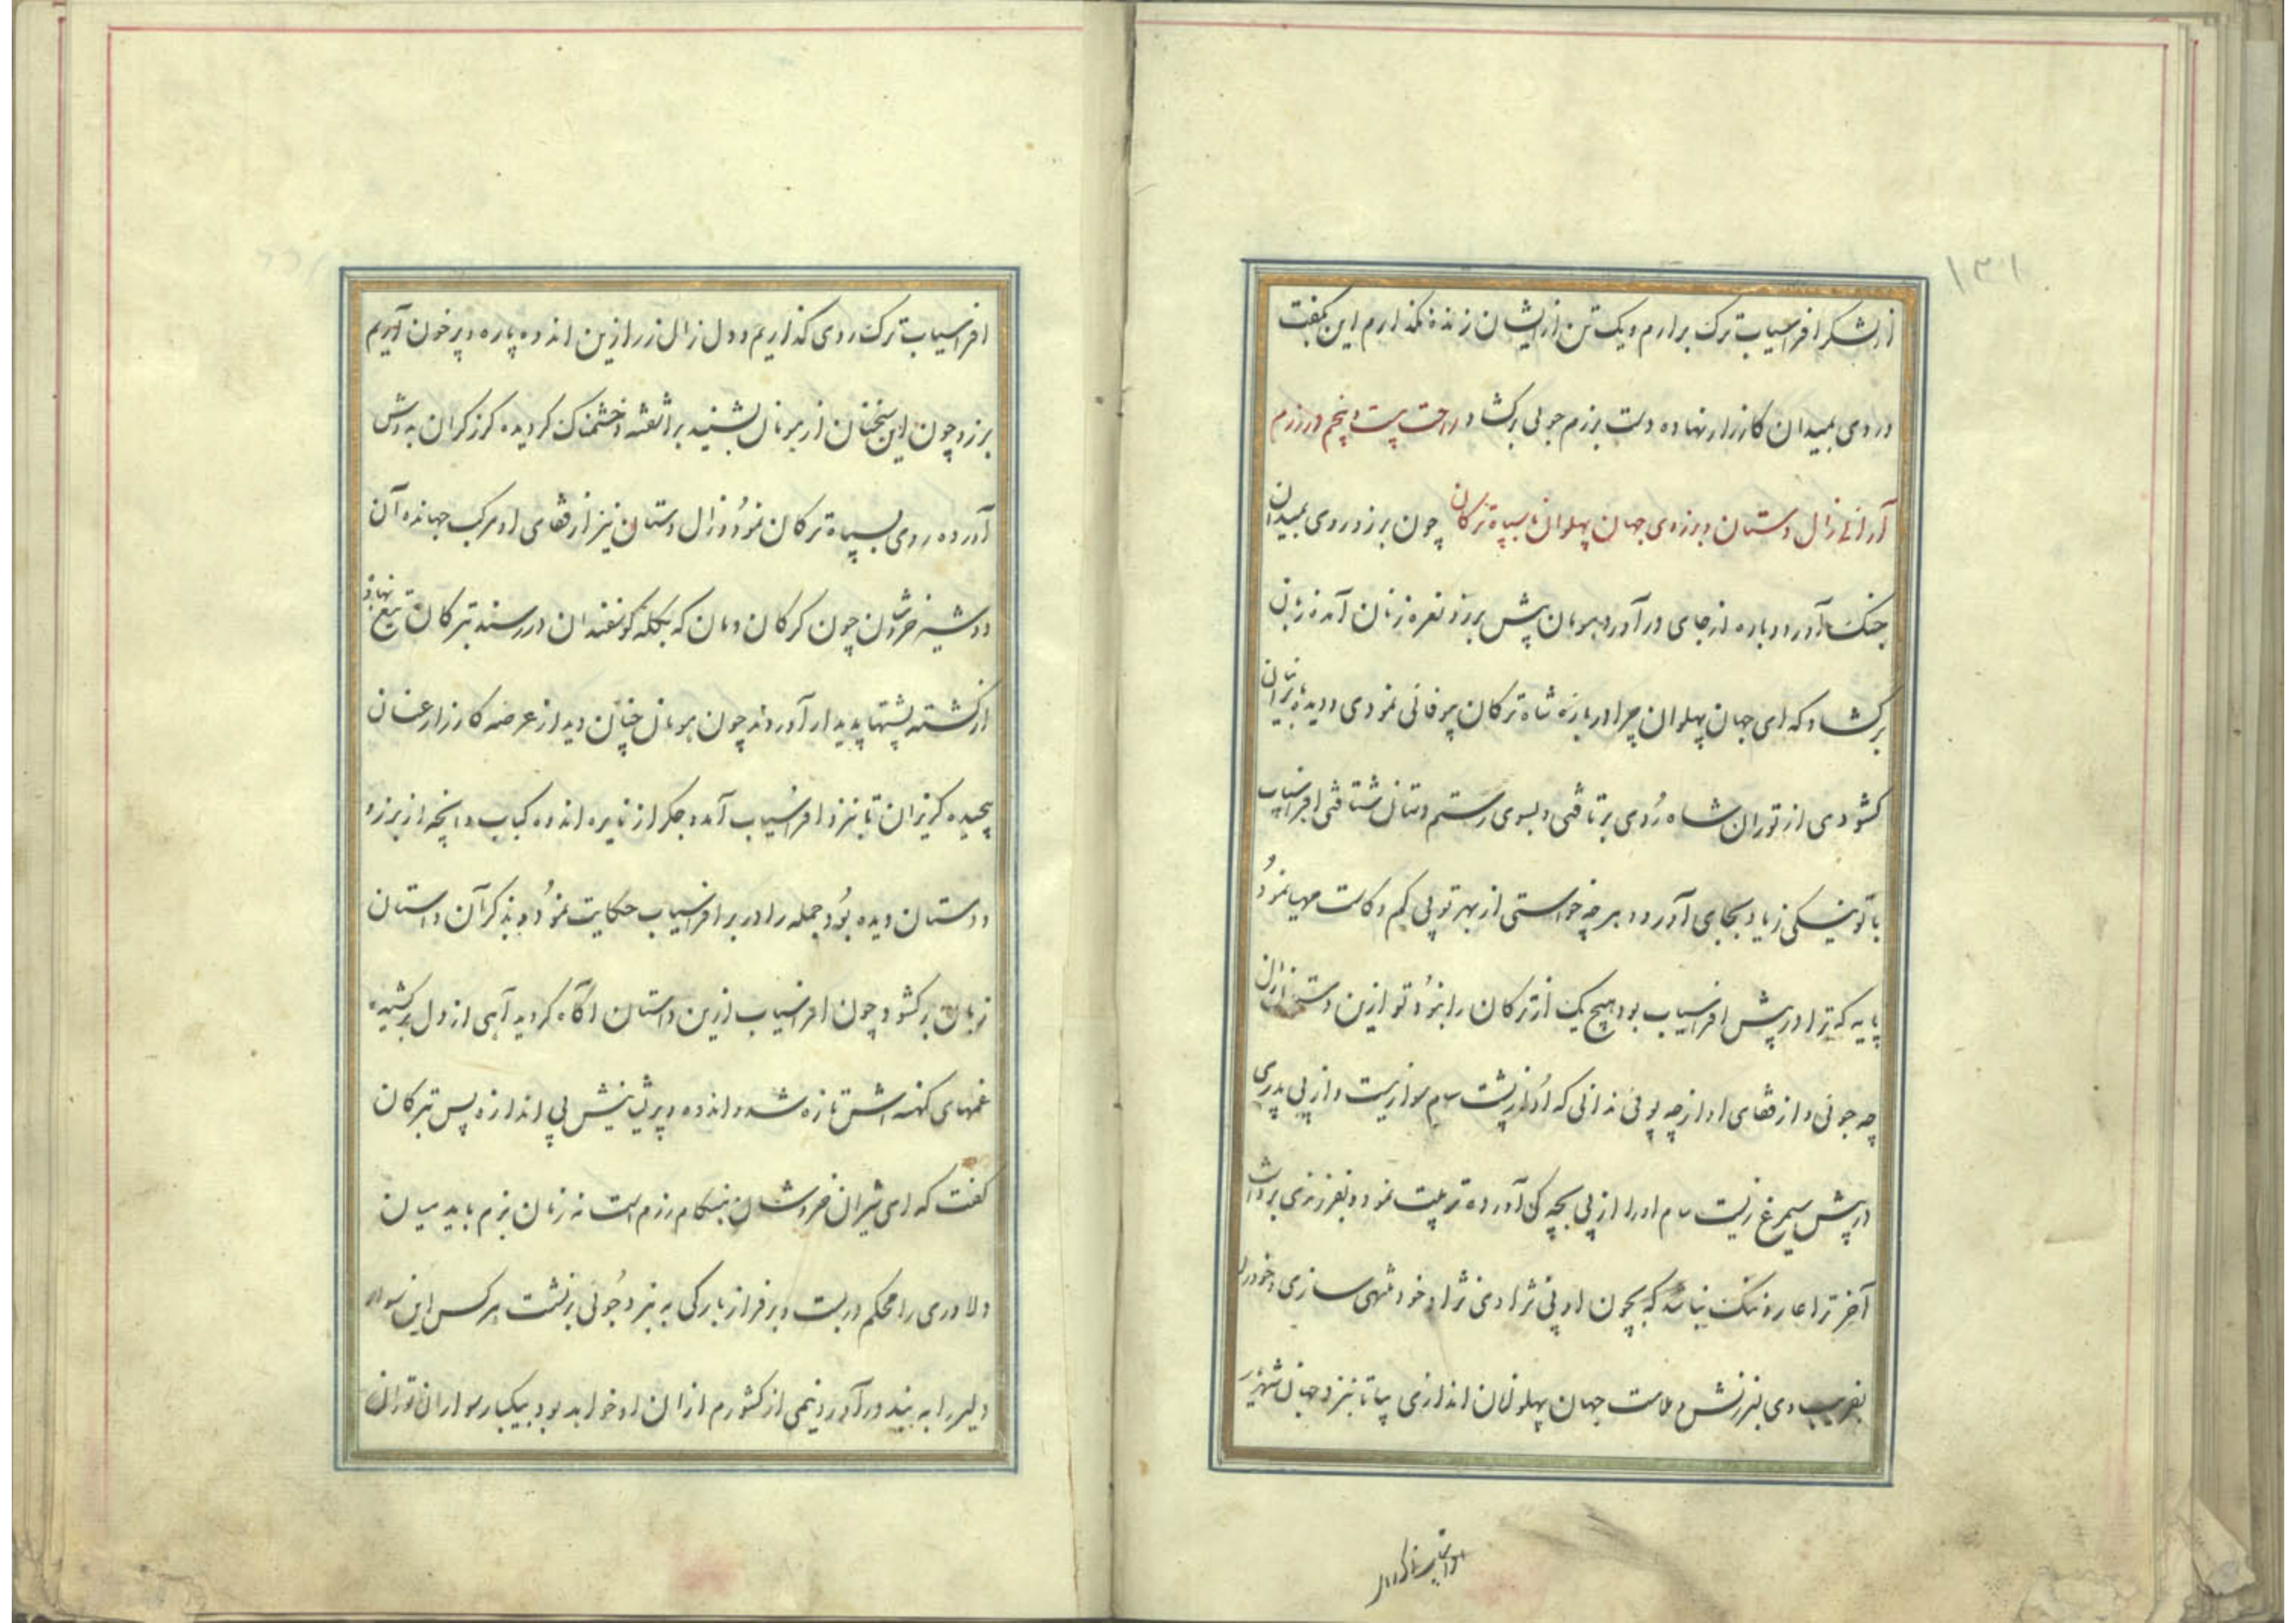 ۱۳۱
از لشکر افراسیاب ترک برارم و یک تن از ایشان زنده نکذارم این بگفت
و روی بمیدان کارزار نهاده دست برزم جوئی برکشاد راحت بیست و پنجم در رزم
آرائی زال دستان و برزوی جهان پهلوان با سپاه ترکان چون برزو روی بمیدان
جنک آورد و باره از جای در آورد هومان پیش برزو نعره زنان آمده زبان
برکشاد که ای جهان پهلوان چرا در باره شاه ترکان بیوفائی نمودی و دیده بایران
کشودی از توران شاه رُوی برتافتی و بسوی رستم دستان شتافتی افراسیاب
با تو نیکی زیاد بجای آورد و هر چه خواستی از بهر تو بی کم و کاست مهیا نمودُ
پایه که ترا در پیش افراسیاب بود هیچ یک از ترکان را نبوُد تو ازین دستان زال
چه جوئی و از قفای او از چه پوئی ندانی که اوُ از پشت سام سوار نیست و از بی پدری
در پیش سیمرغ زیست سام او را از پی بچه کی آورده تربیت نمود و بفرزندی برداشت
آخر ترا عار و ننک نباشد که بچون او بی نژادی نژاد خود منتهی سازی و خود را
بفریب وی بسرزنش و ملامت جهان پهلوانان اندازی بیا تا بنزد جهان شهریر
افراسیاب ترک روی کذاریم و دل زال زر را ازین اندوه پاره و پر خون آریم
برزو چون این سخنان از هومان بشنید براشفته و خشمناک کردیده کرز کران به دوش
آورده روی بسپاه ترکان نموُد و زال دستان نیز از قفای او مرکب جهانده آن
دو شیر خروشان چون کرکان دمان که بکله کوسفندان در رسند بترکان تیغ نهادُ
از کشته پشتها پدیدار آوردند چون هومان چنان دید از عرصه کارزار عنان
پیچیده کریزان تا بنزد افراسیاب آمد و جکر از نایره اندوه کباب و آنچه از برزو
و دستان دیده بوُد جمله را در بر افراسیاب حکایت نموُد و بذکر آن داستان
زبان برکشود چون افراسیاب ازین داستان آکاه کردید آهی از دل برکشیده
غمهای کهنه اش تازه شد و اندوه و پریشانیش بی اندازه پس بترکان
کفت که ای شیران خروشان هنکام رزم است نه زمان بزم باید میان
دلاوری را محکم در بست و بر فراز بارکی به نبرد جُوئی برنشست هر کس این سوار
دلیر را به بند در آورد نیمی از کشورم از ان او خواهد بود بیکبار سواران توران